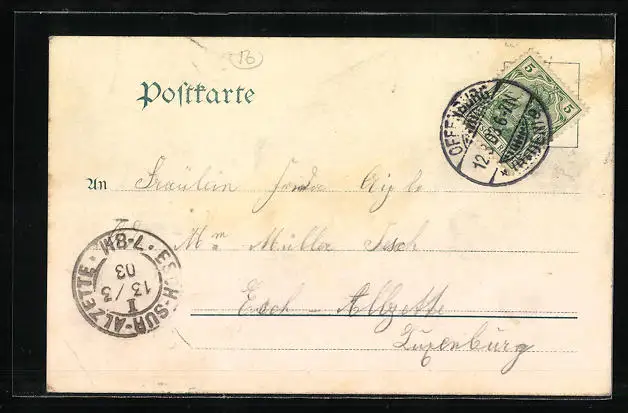 16
Postkarte
5
5
OFFENBURG
12.3.03.6-7N
(BADEN)
An Fräulein
Mm Müller Tesch
Esch-Allzette
Luxenburg
ESCH-SUR-ALZETTE
7-8M
13/3
03
I